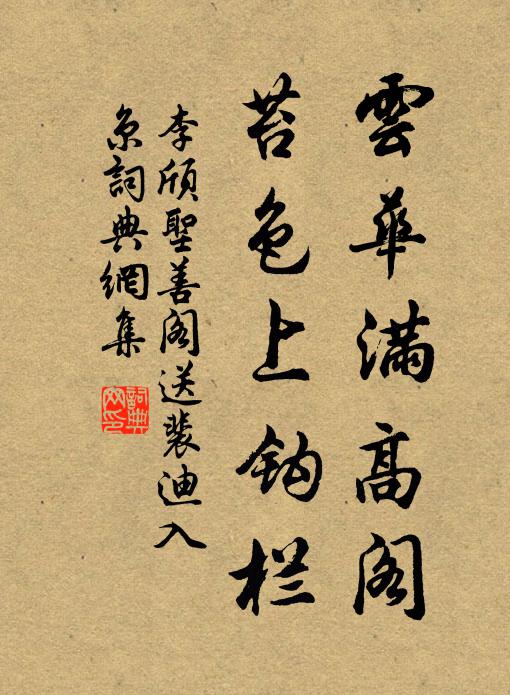 雲華滿高阁
苔色上鈎栏
李頎聖善阁送裴迪入
京詞典網集
詞典
网印